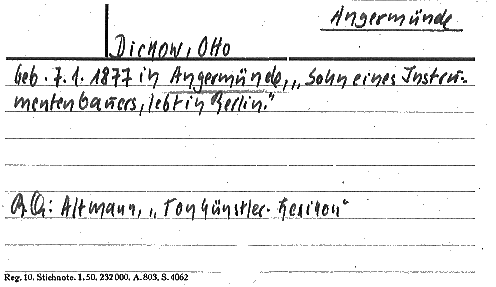 Angermünde
Dickow, Otto
Geb. 7. 1. 1877 in Angermünde, „Sohn eines Instru-
mentenbauers, lebt in Berlin."
B. Q.: Altmann, „Tonkünstler-Lexikon"
Reg. 10. Stichnote. 1. 50. 232 000. A. 803. S. 4062